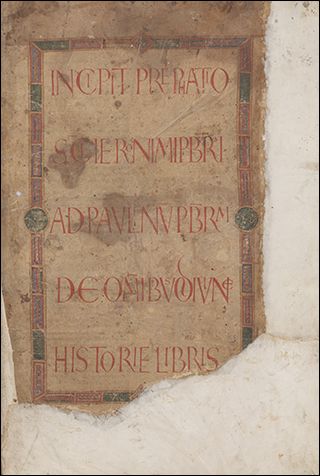 INCIPIT PREFATIO
SCI IERONIMI PBRI
AD PAULINU PBRM
DE OMIBUS DIUINE
HISTORIE LIBRIS